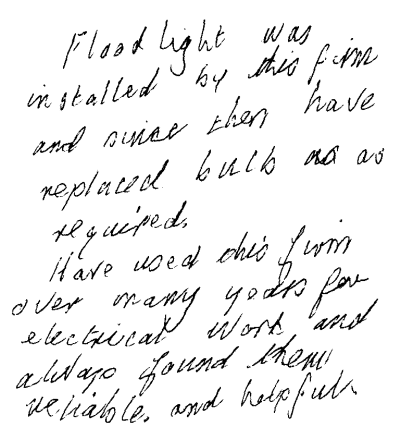 Flood light was
installed by this firm
and since then have
replaced bulb as as
required.
Have used this firm
over many years for
electrical work and
always found them
reliable. and helpful.